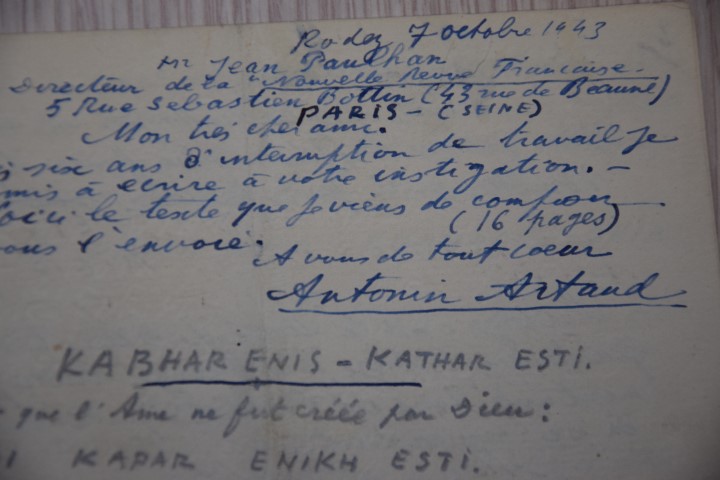 Rodez 7 octobre 1943
Mr Jean Paulhan
Directeur de la "Nouvelle Revue Française.
5 Rue Sébastien Bottin (43 rue de Beaune)
PARIS - (SEINE)
Mon très cher ami.
six ans d'interruption de travail je
mis à écrire à votre instigation. -
le texte que je viens de composer
(16 pages)
l'envoie.
A vous de tout coeur
Antonin Artaud
KABHAR ENIS - KATHAR ESTI.
que l'Ame ne fut créée par Dieu:
KAPAR ENIKH ESTI.